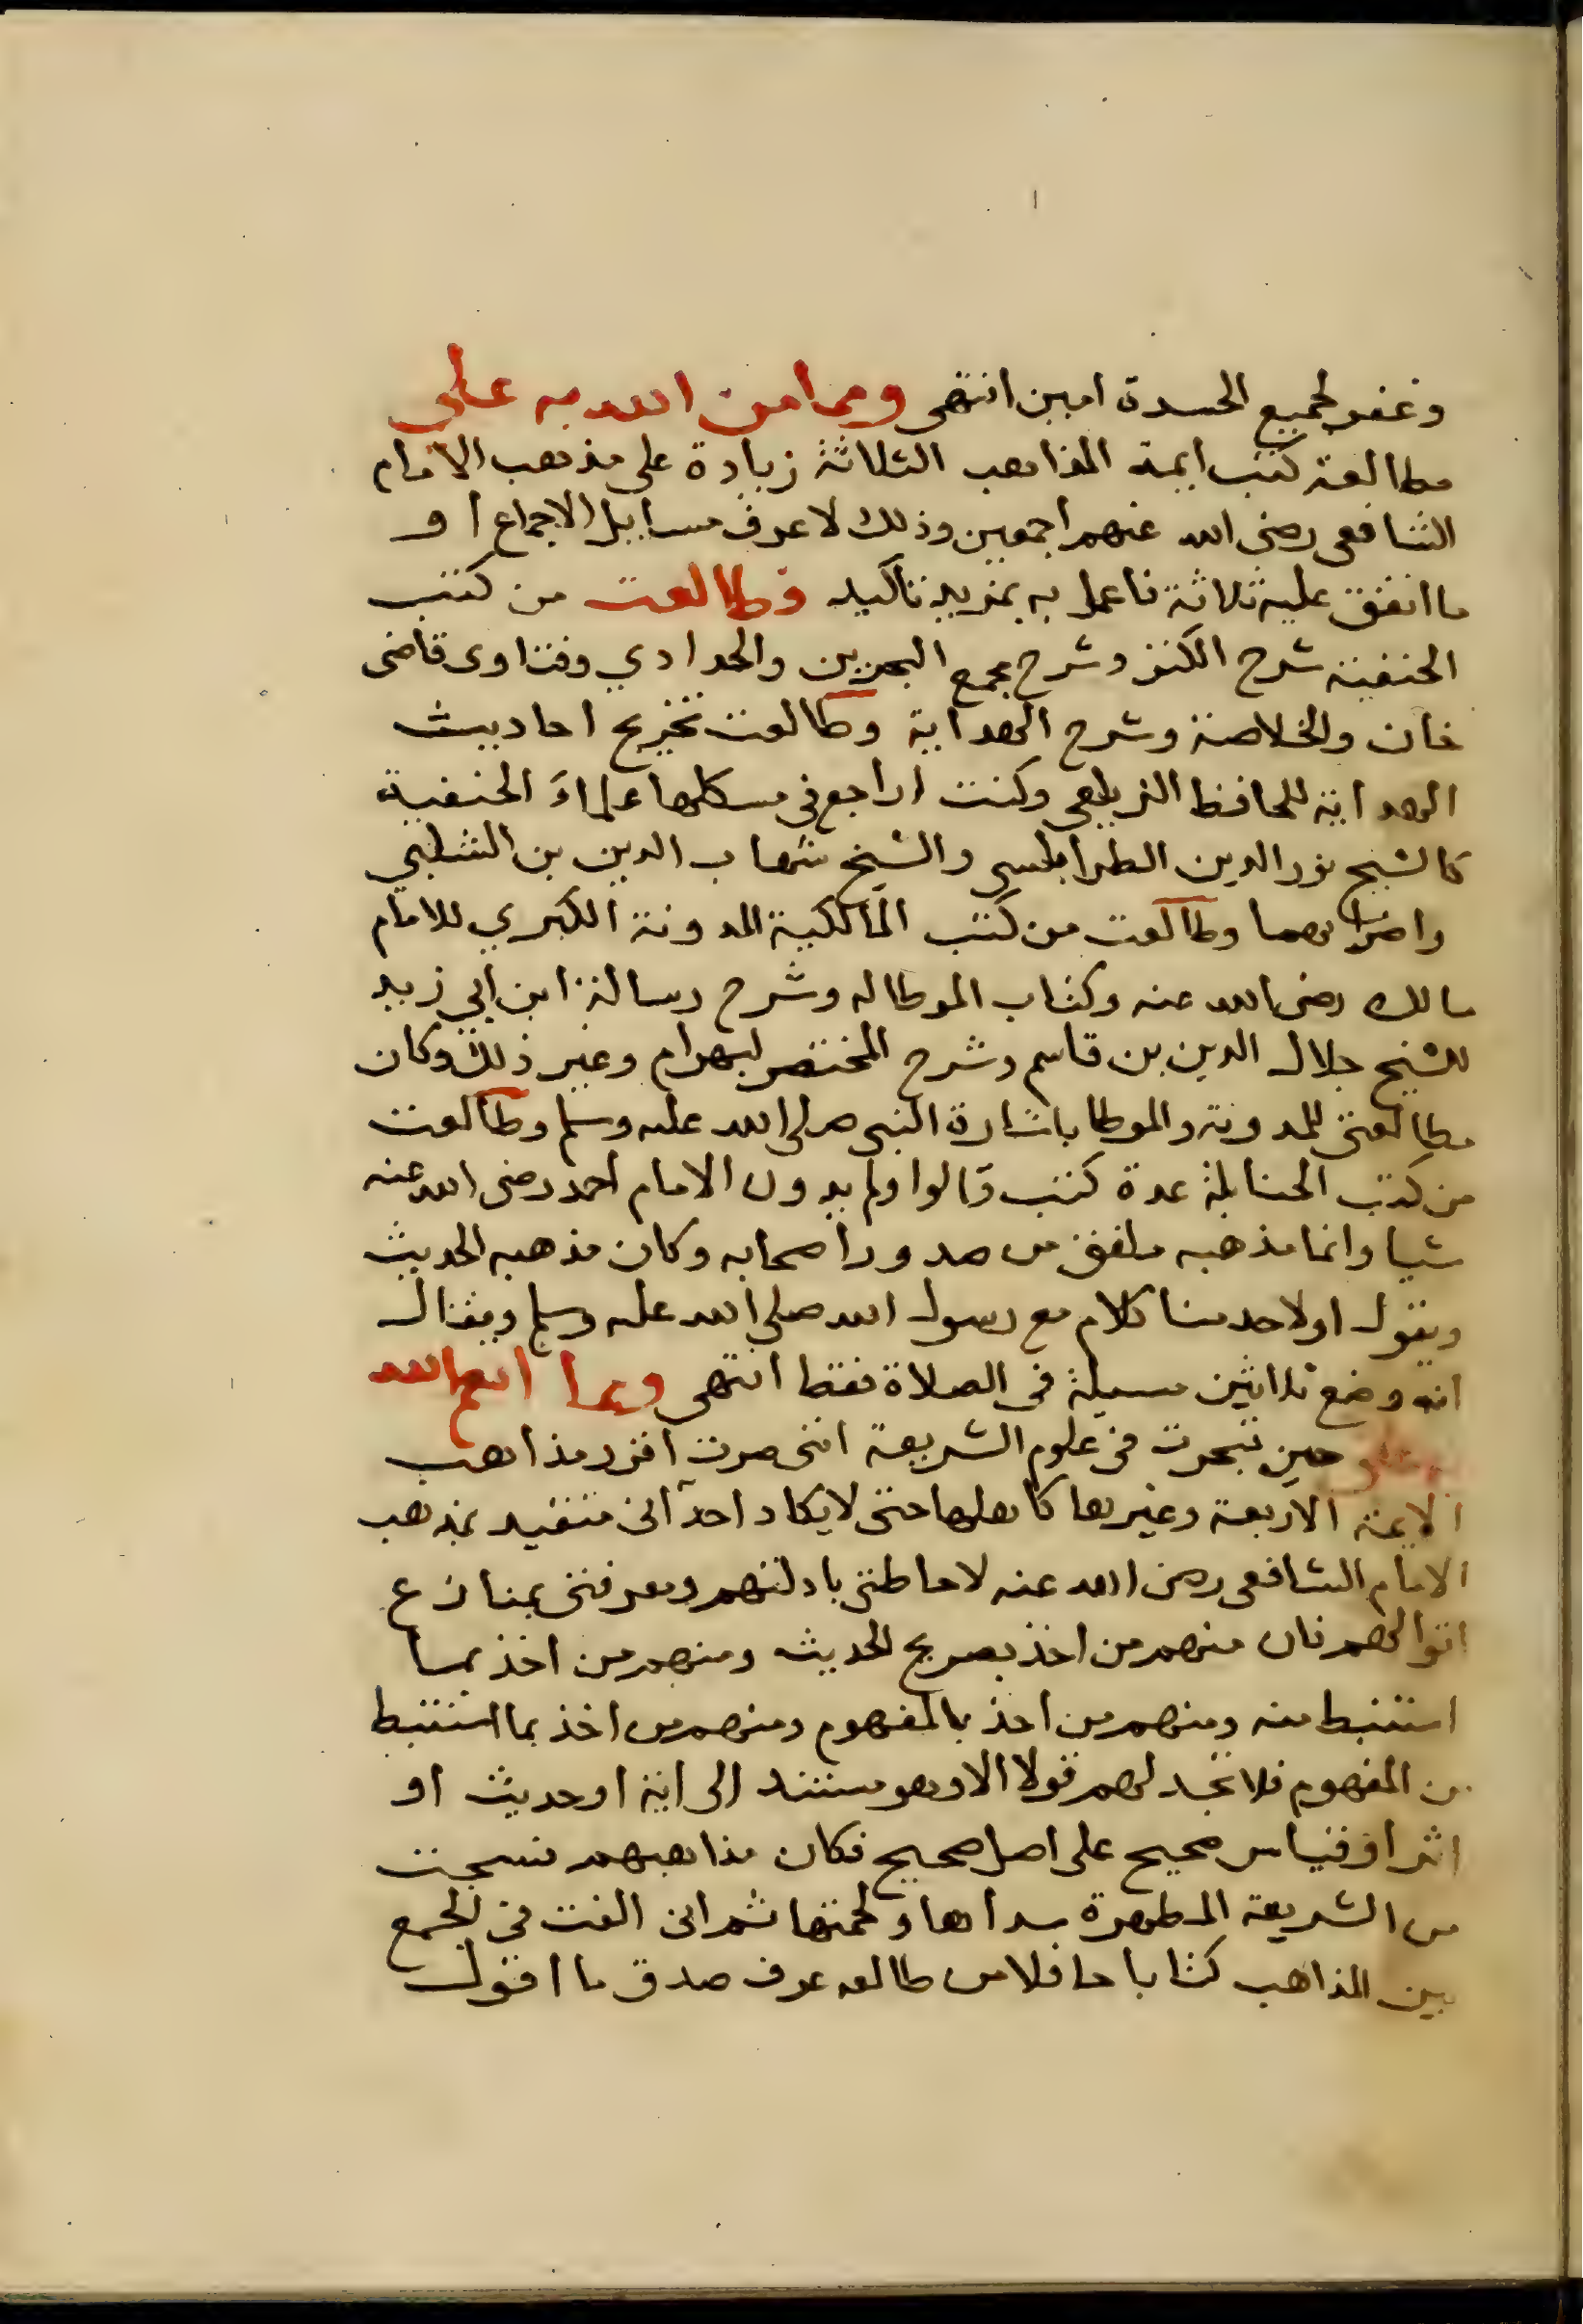 وغفر لجميع الحسدة امين انتهى ومما من الله به على
مطالعة كتب ايمة المذاهب الثلاثة زيادة على مذهب الامام
الشافعى رضى الله عنهم اجمعين وذلك لاعرف مسايل الاجماع او
ما اتفق عليه ثلاثة فاعمل به بمزيد تاكيد فطالعت من كتب
الحنفية شرح الكنز وشرح مجمع البحرين والحدادي وفتاوى قاضى
خان والخلاصة وشرح الهداية وطالعت تخريج احاديث
الهداية للحافظ الزيلعى وكنت اراجع فى مسكلها علماء الحنفية
كالشيخ نور الدين الطرابلسى والشيخ شهاب الدين بن الشلبي
واضرابهما وطالعت من كتب المالكية المدونة الكبري للامام
مالك رضى الله عنه وكتاب الموطا له وشرح رسالة ابن ابي زيد
للشيخ جلال الدين بن قاسم وشرح المختصر لبهرام وغير ذلك وكان
مطالعتى للمدونة والموطا باشارة النبى صلى الله عليه وسلم وطالعت
من كتب الحنابلة عدة كتب قالوا ولم يدون الامام احمد رضى الله عنه
شيا وانما مذهبه ملفق من صدور اصحابه وكان مذهبه الحديث
ويقول اولاحد منا كلام مع رسول الله صلى الله عليه وسلم ويقال
انه وضع ثلاثين مسيلة فى الصلاة فقط انتهى ومما انعم الله
به على حين تبحرت فى علوم الشريعة اننى صرت اقرر مذاهب
الايمة الاربعة وغيرها كاهلها حتى لا يكاد احدا انى متقيد بمذهب
الامام الشافعى رضى الله عنه لاحاطتى بادلتهم ومعرفتى بمنازع
اقوالهم فان منهم من اخذ بصريح الحديث ومنهم من اخذ بما
استنبط منه ومنهم من اخذ بالمفهوم ومنهم من اخذ بما استنبط
من المفهوم فلا تجد لهم قولا الا وهو مستند الى اية او حديث او
اثر او قياس صحيح على اصل صحيح فكان مذاهبهم نسجت
من الشريعة المطهرة سداها ولحمتها ثم انى الفت فى الجمع
بين المذاهب كتابا حافلا من طالعه عرف صدق ما اقول